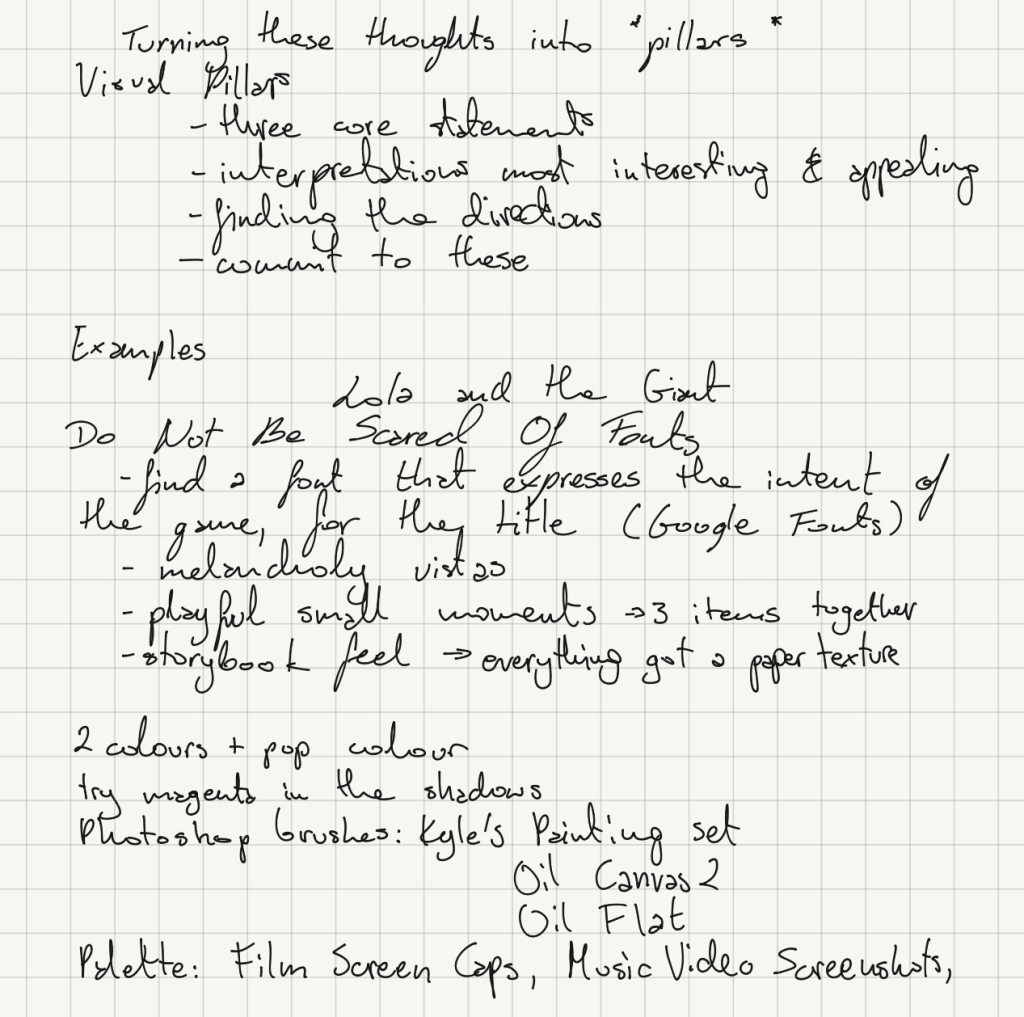 Turning these thoughts into *pillars*
Visual Pillars
- three core statements
- interpretations most interesting & appealing
- finding the directions
- commit to these
Examples
Lola and the Giant
Do Not Be Scared Of Fonts
- find a font that expresses the intent of
the game, for they title (Google Fonts)
- melancholy vistas
- playful small moments → 3 items together
- storybook feel → everything got a paper texture
2 colours + pop colour
try magenta in the shadows
Photoshop brushes: Kyle's Painting set
Oil Canvas 2
Oil Flat
Palette: Film Screen Caps, Music Video Screenshots,